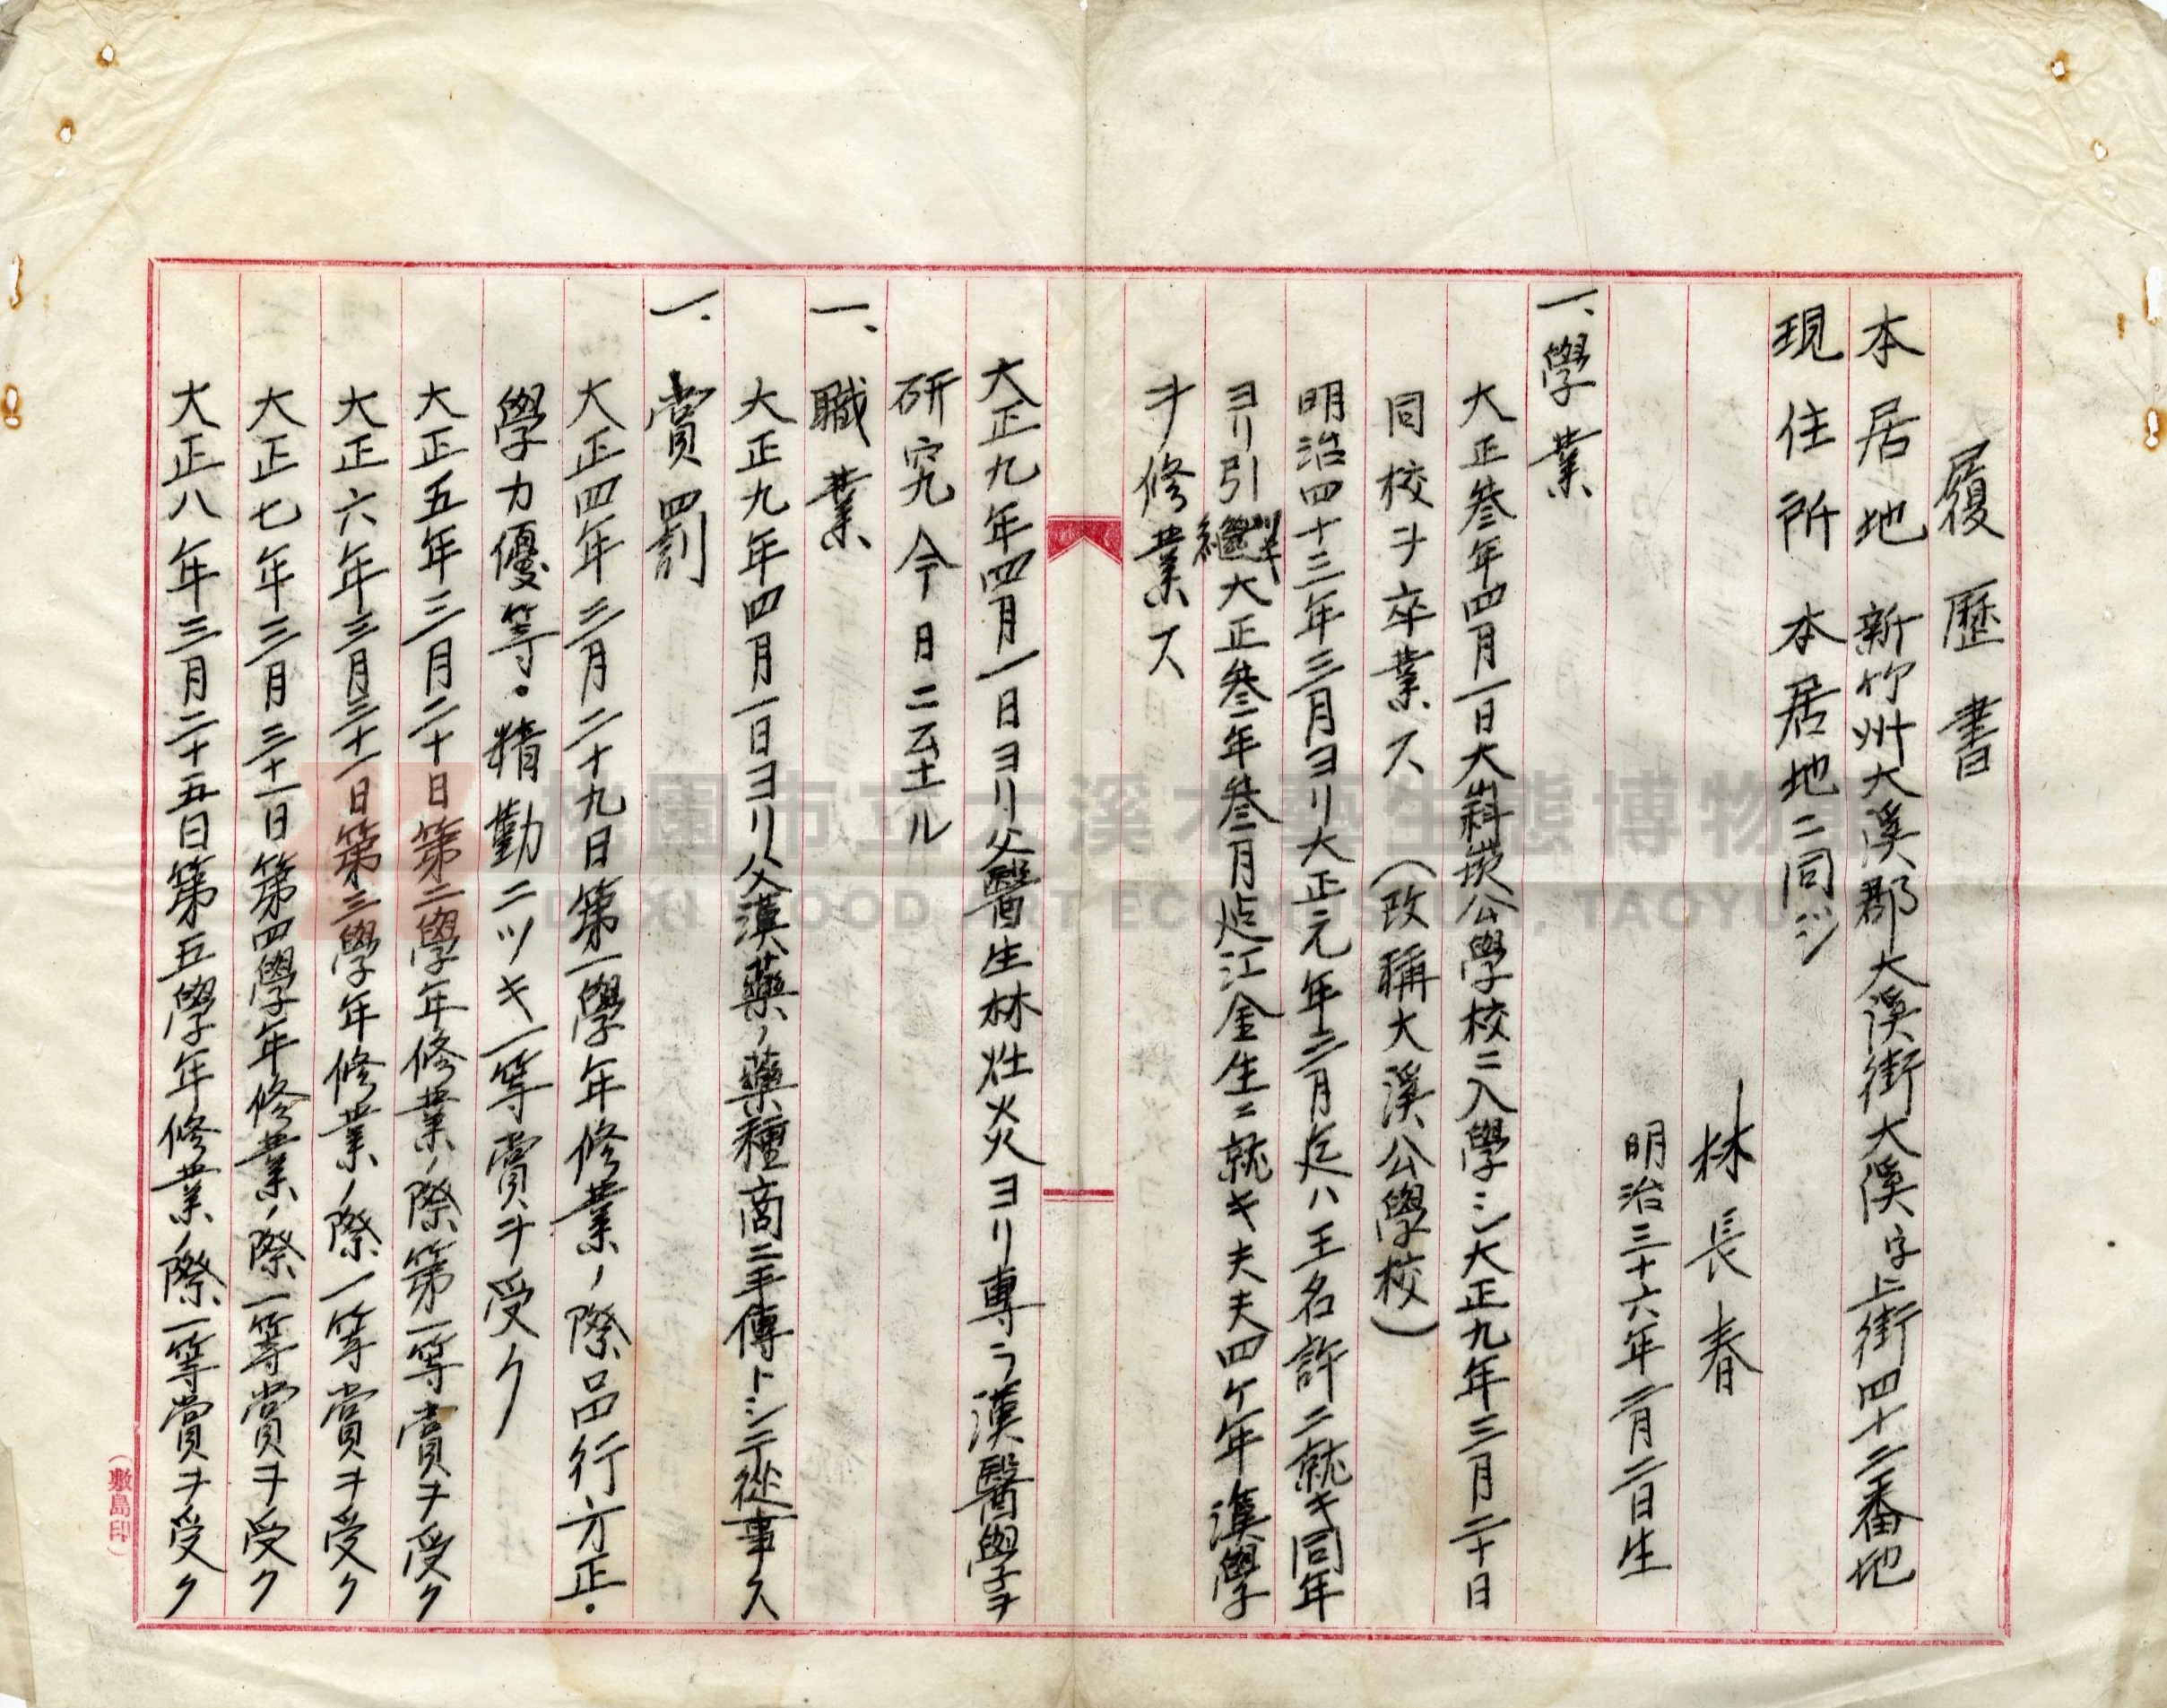 履歷書
本居地 新竹州大溪郡大溪街大溪字上街四十二番地
現住所 本居地ニ同ジ
林長春
明治三十六年二月二日生
一、學業
大正叁年四月一日大嵙崁公學校ニ入學シ大正九年三月二十日
同校ヲ卒業ス (改稱大溪公學校)
明治四十三年三月ヨリ大正元年三月迄ハ王名許ニ就キ同年
ヨリ引繼大正叁年叁月迄江金生ニ就キ夫夫四ケ年漢學
ヲ修業ス
大正九年四月一日ヨリ父醫生林灶炎ヨリ專ラ漢醫學ヲ
研究今日ニ至ル
一、職業
大正九年四月一日ヨリ父漢藥ノ藥種商ニ手傳トシテ從事ス
一、賞罰
大正四年三月二十九日第一學年修業ノ際品行方正.
學力優等.精勤ニツキ一等賞ヲ受ク
大正五年三月二十日第二學年修業ノ際第一等賞ヲ受ク
大正六年三月三十一日第三學年修業ノ際一等賞ヲ受ク
大正七年三月三十一日第四學年修業ノ際一等賞ヲ受ク
大正八年三月二十五日第五學年修業ノ際一等賞ヲ受ク
(敷島印)
桃園市立大溪木藝生態博物
DAXI WOOD ART ECOMUSEUM, TAOYU